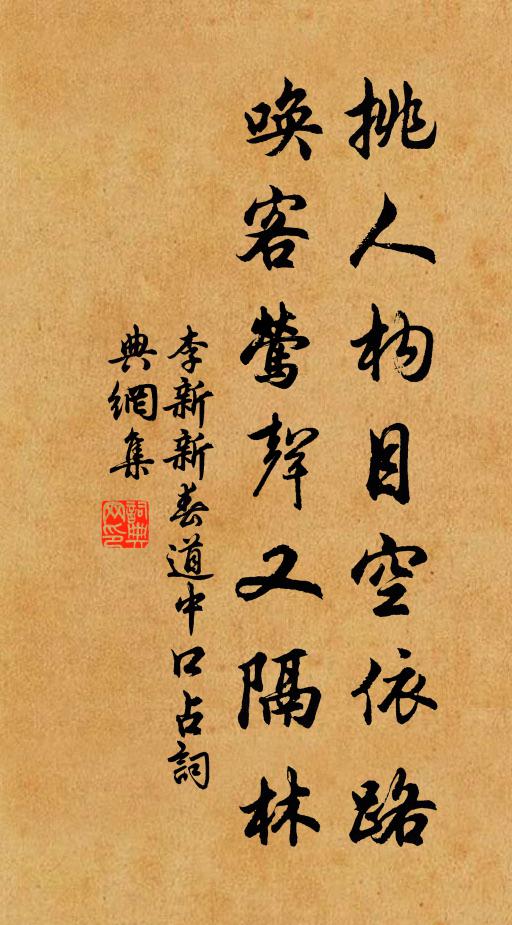 挑人柳目空依路
喚客鶯聲又隔林
李新新春道中口占詞
典網集
詞典網印